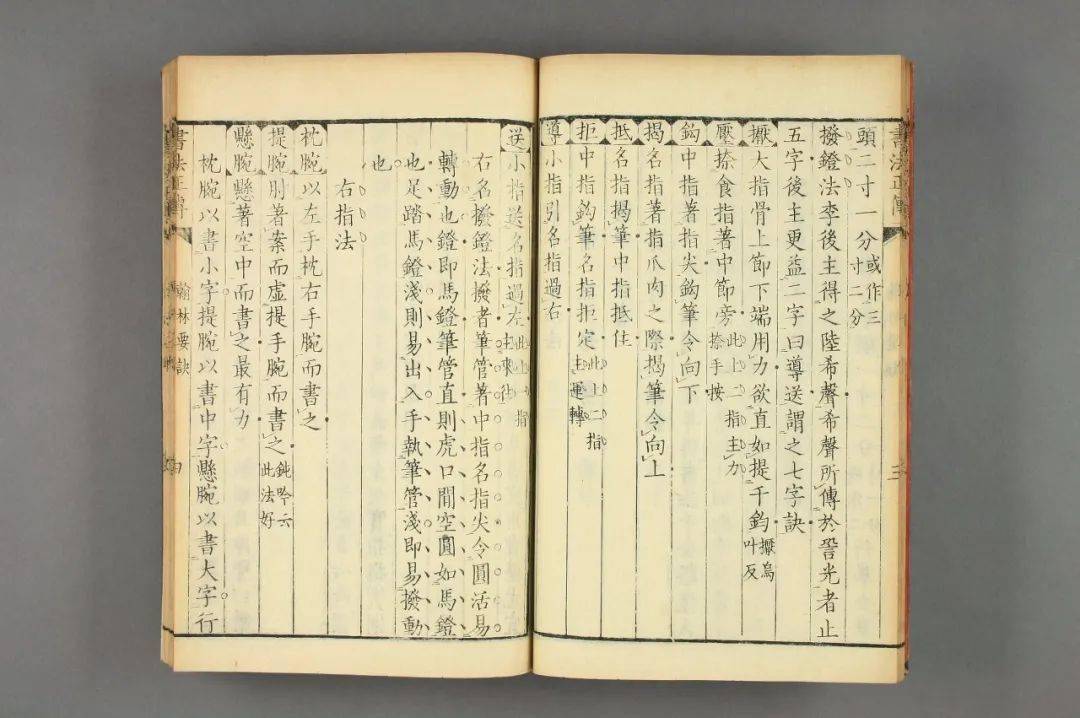 頭二寸一分或作三寸二分
撥鐙法李後主得之陸希聲希聲所傳於䛒光者止
五字後主更益二字曰導送謂之七字訣
擫大指骨上節下端用力欲直如提千鈞擫烏叶反
壓捺食指著中節旁此上二指主力捺手按
鈎中指著指尖鈎筆令向下
揭名指著指爪肉之際揭筆令向上
抵名指揭筆中指抵住
拒中指鈎筆名指拒定此上二指主運轉
導小指引名指過右
送小指送名指過左此上一指主來往
右名撥鐙法撥者筆管著中指名指尖令圓活易
轉動也鐙即馬鐙筆管直則虎口間空圓如馬鐙
也足踏馬鐙淺則易出入手執筆管淺即易撥動
也
右指法
枕腕以左手枕右手腕而書之
提腕肘著案而虛提手腕而書之鈍吟云此法好
懸腕懸著空中而書之最有力
枕腕以書小字提腕以書中字懸腕以書大字行
書法正傳
翰林要訣